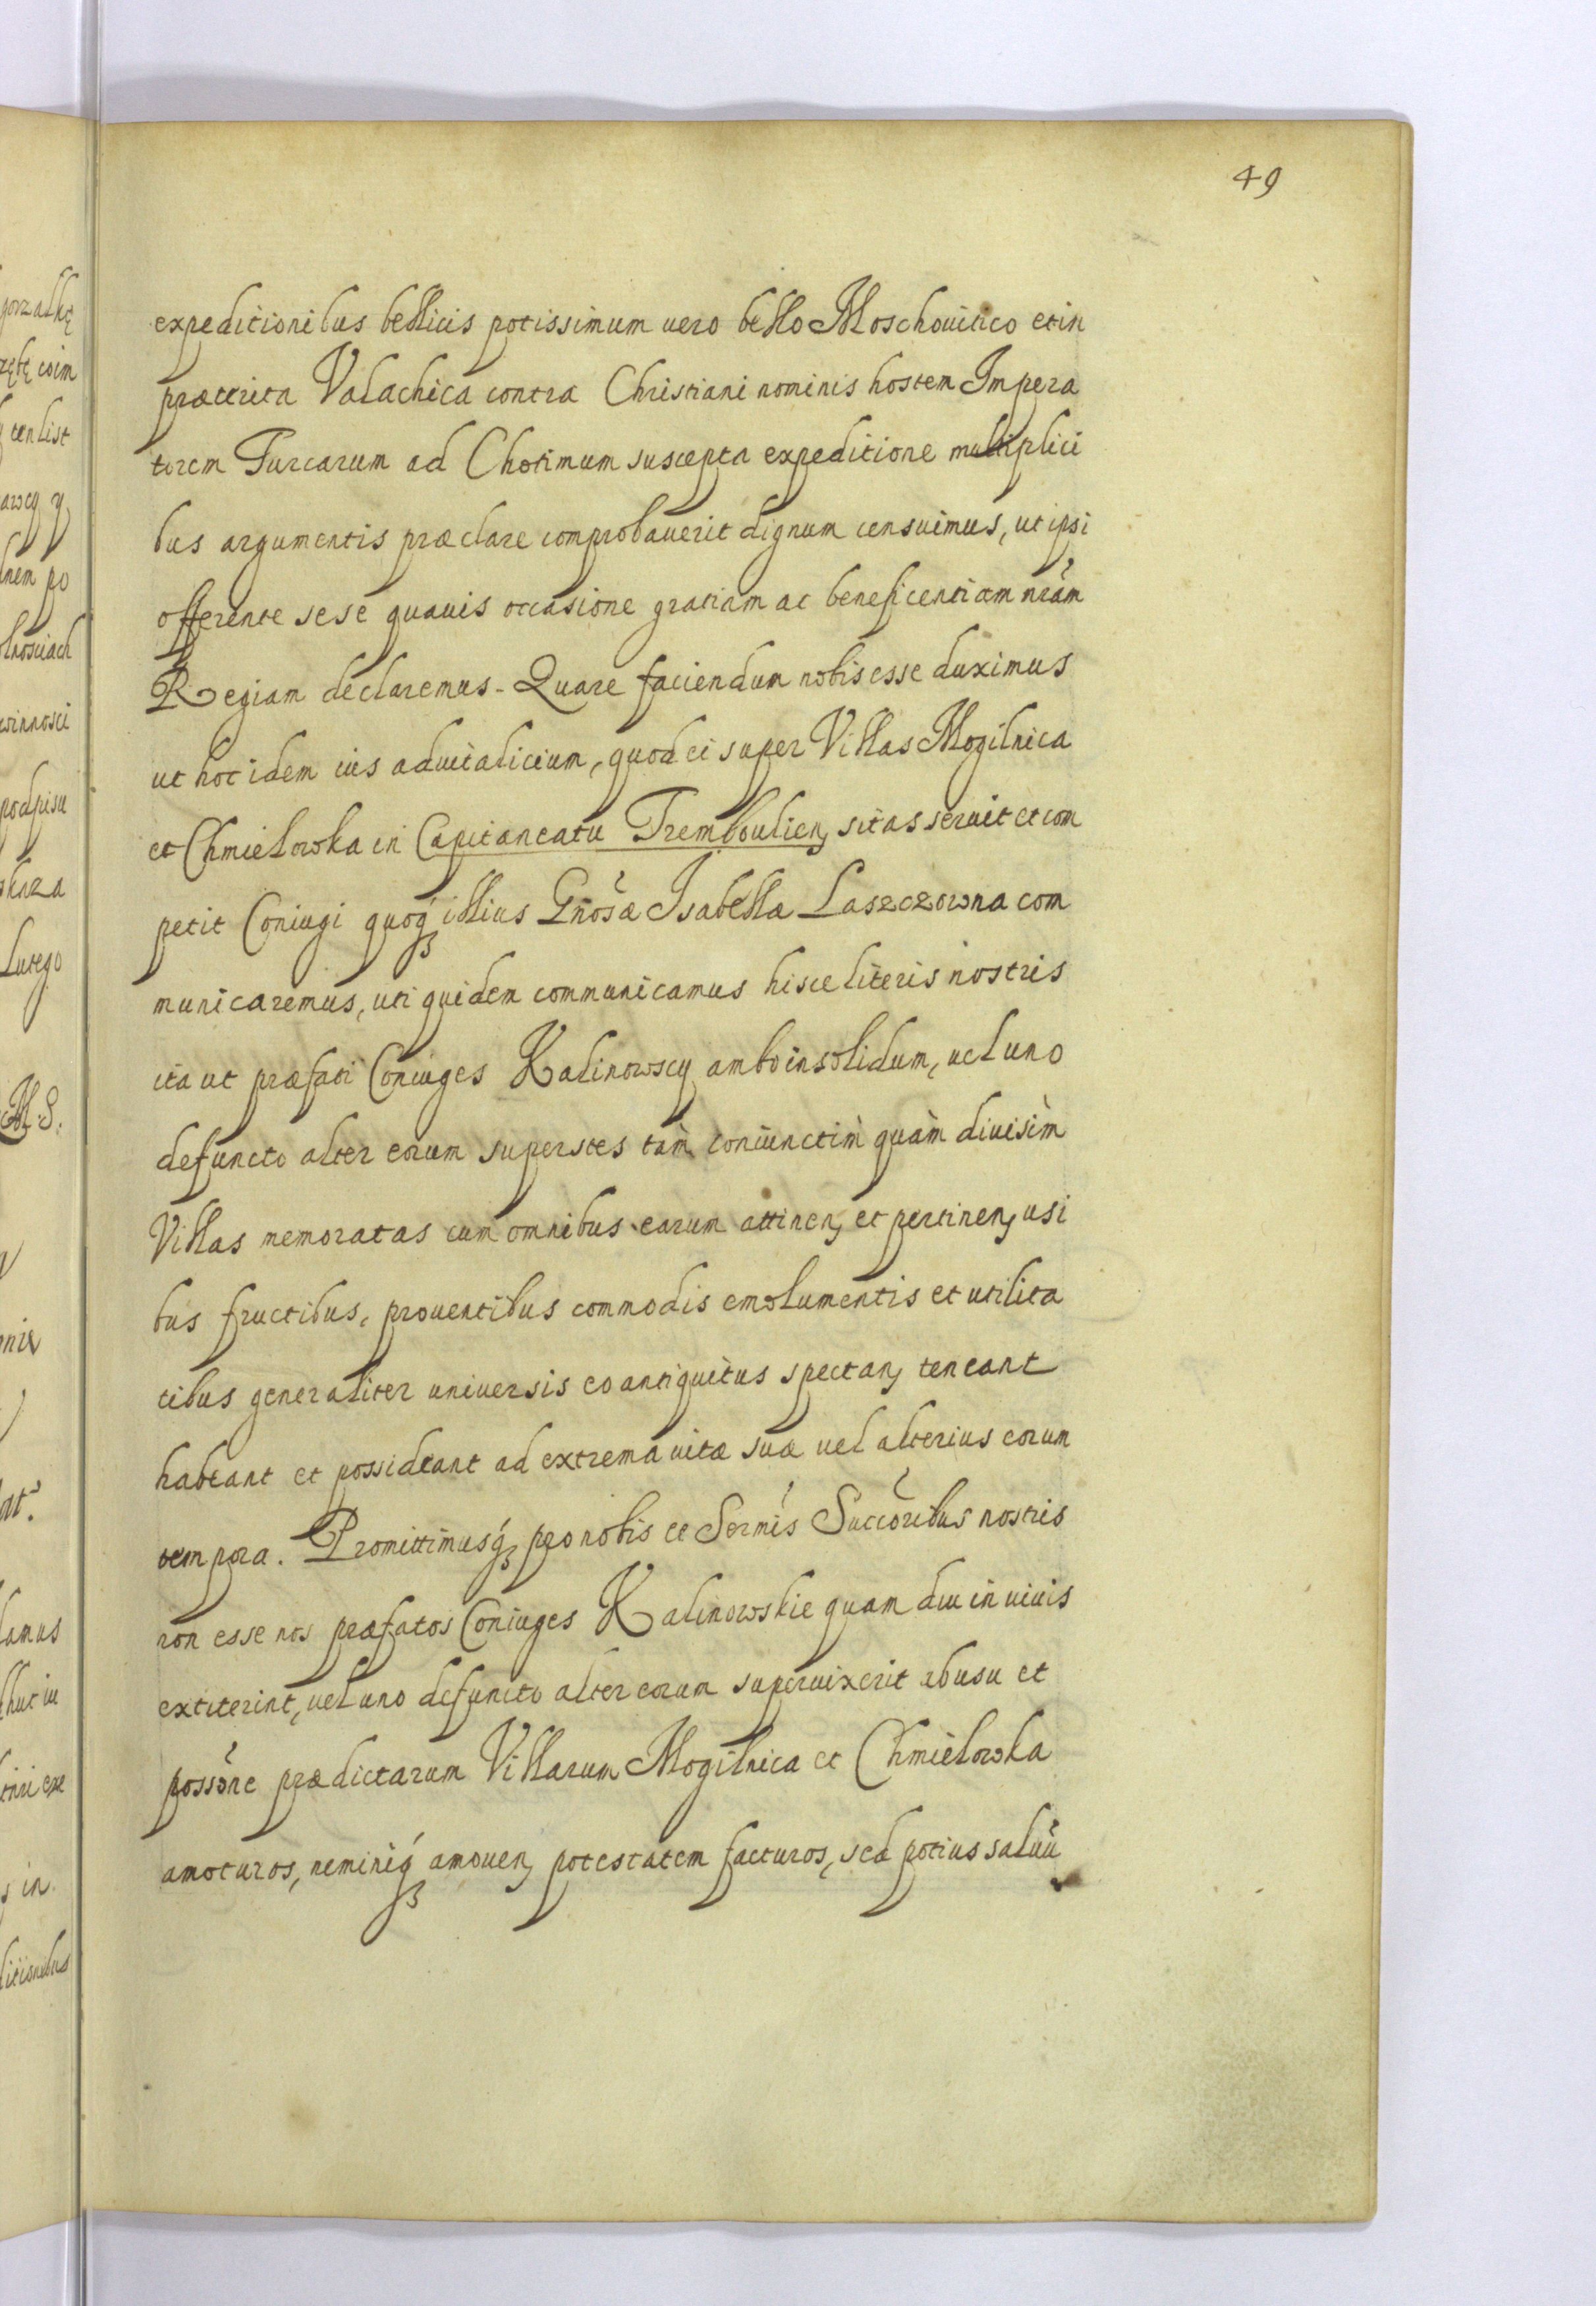 49
expeditionibus bellicis potissimum uero bello Moschouitico et in
præterita Valachica contra Christiani nominis hostem Impera
torem Turcarum ad Chotimum suscepta expeditione multiplici
bus argumentis præclare comprobauerit dignum censuimus, ut ipsi
offerente sese quauis occasione gratiam ac beneficentiam nram̃
Regiam declaremus - Quare faciendum nobis esse duximus
ut hoc idem ius aduitalicium, quod ei super Villas Mogilnica
et Chmielowka in Capitaneatu Tremboulien, sitas seruit et com
petit Coniugi quoq́ illius Gnõsæ Isabellæ Laszczowna com
municaremus, uti quidem communicamus hisce literis nostris
ita ut præfati Coniuges Kalinowscy ambo insolidum, uel uno
defuncto alter eorum superstes tam̀ coniunctim̀ quàm diuisìm
Villas memoratas cum omnibus earum attinen, et pertinen, usi
bus fructibus, prouentibus commodis emolumentis et utilita
tibus generaliter uniuersis eo antiquitus spectan, teneant
habeant et possideant ad extrema uitæ suæ uel alterius eorum
tempora. Promittimusq́ pro nobis et Sermis Succõribus nostris
non esse nos præfatos Coniuges Kalinowskie quam diu in uiuis
extiterint, uel uno defuncto alter eorum superuixerit ab usu et
possõne prædictarum Villarum Mogilnica et Chmielowka
amoturos, neminiq́ amouen, potestatem facturos, sed potius saluũ
gorzalkę
ten list
nem po
podpisu
skaza
Lutego
M. S.
in